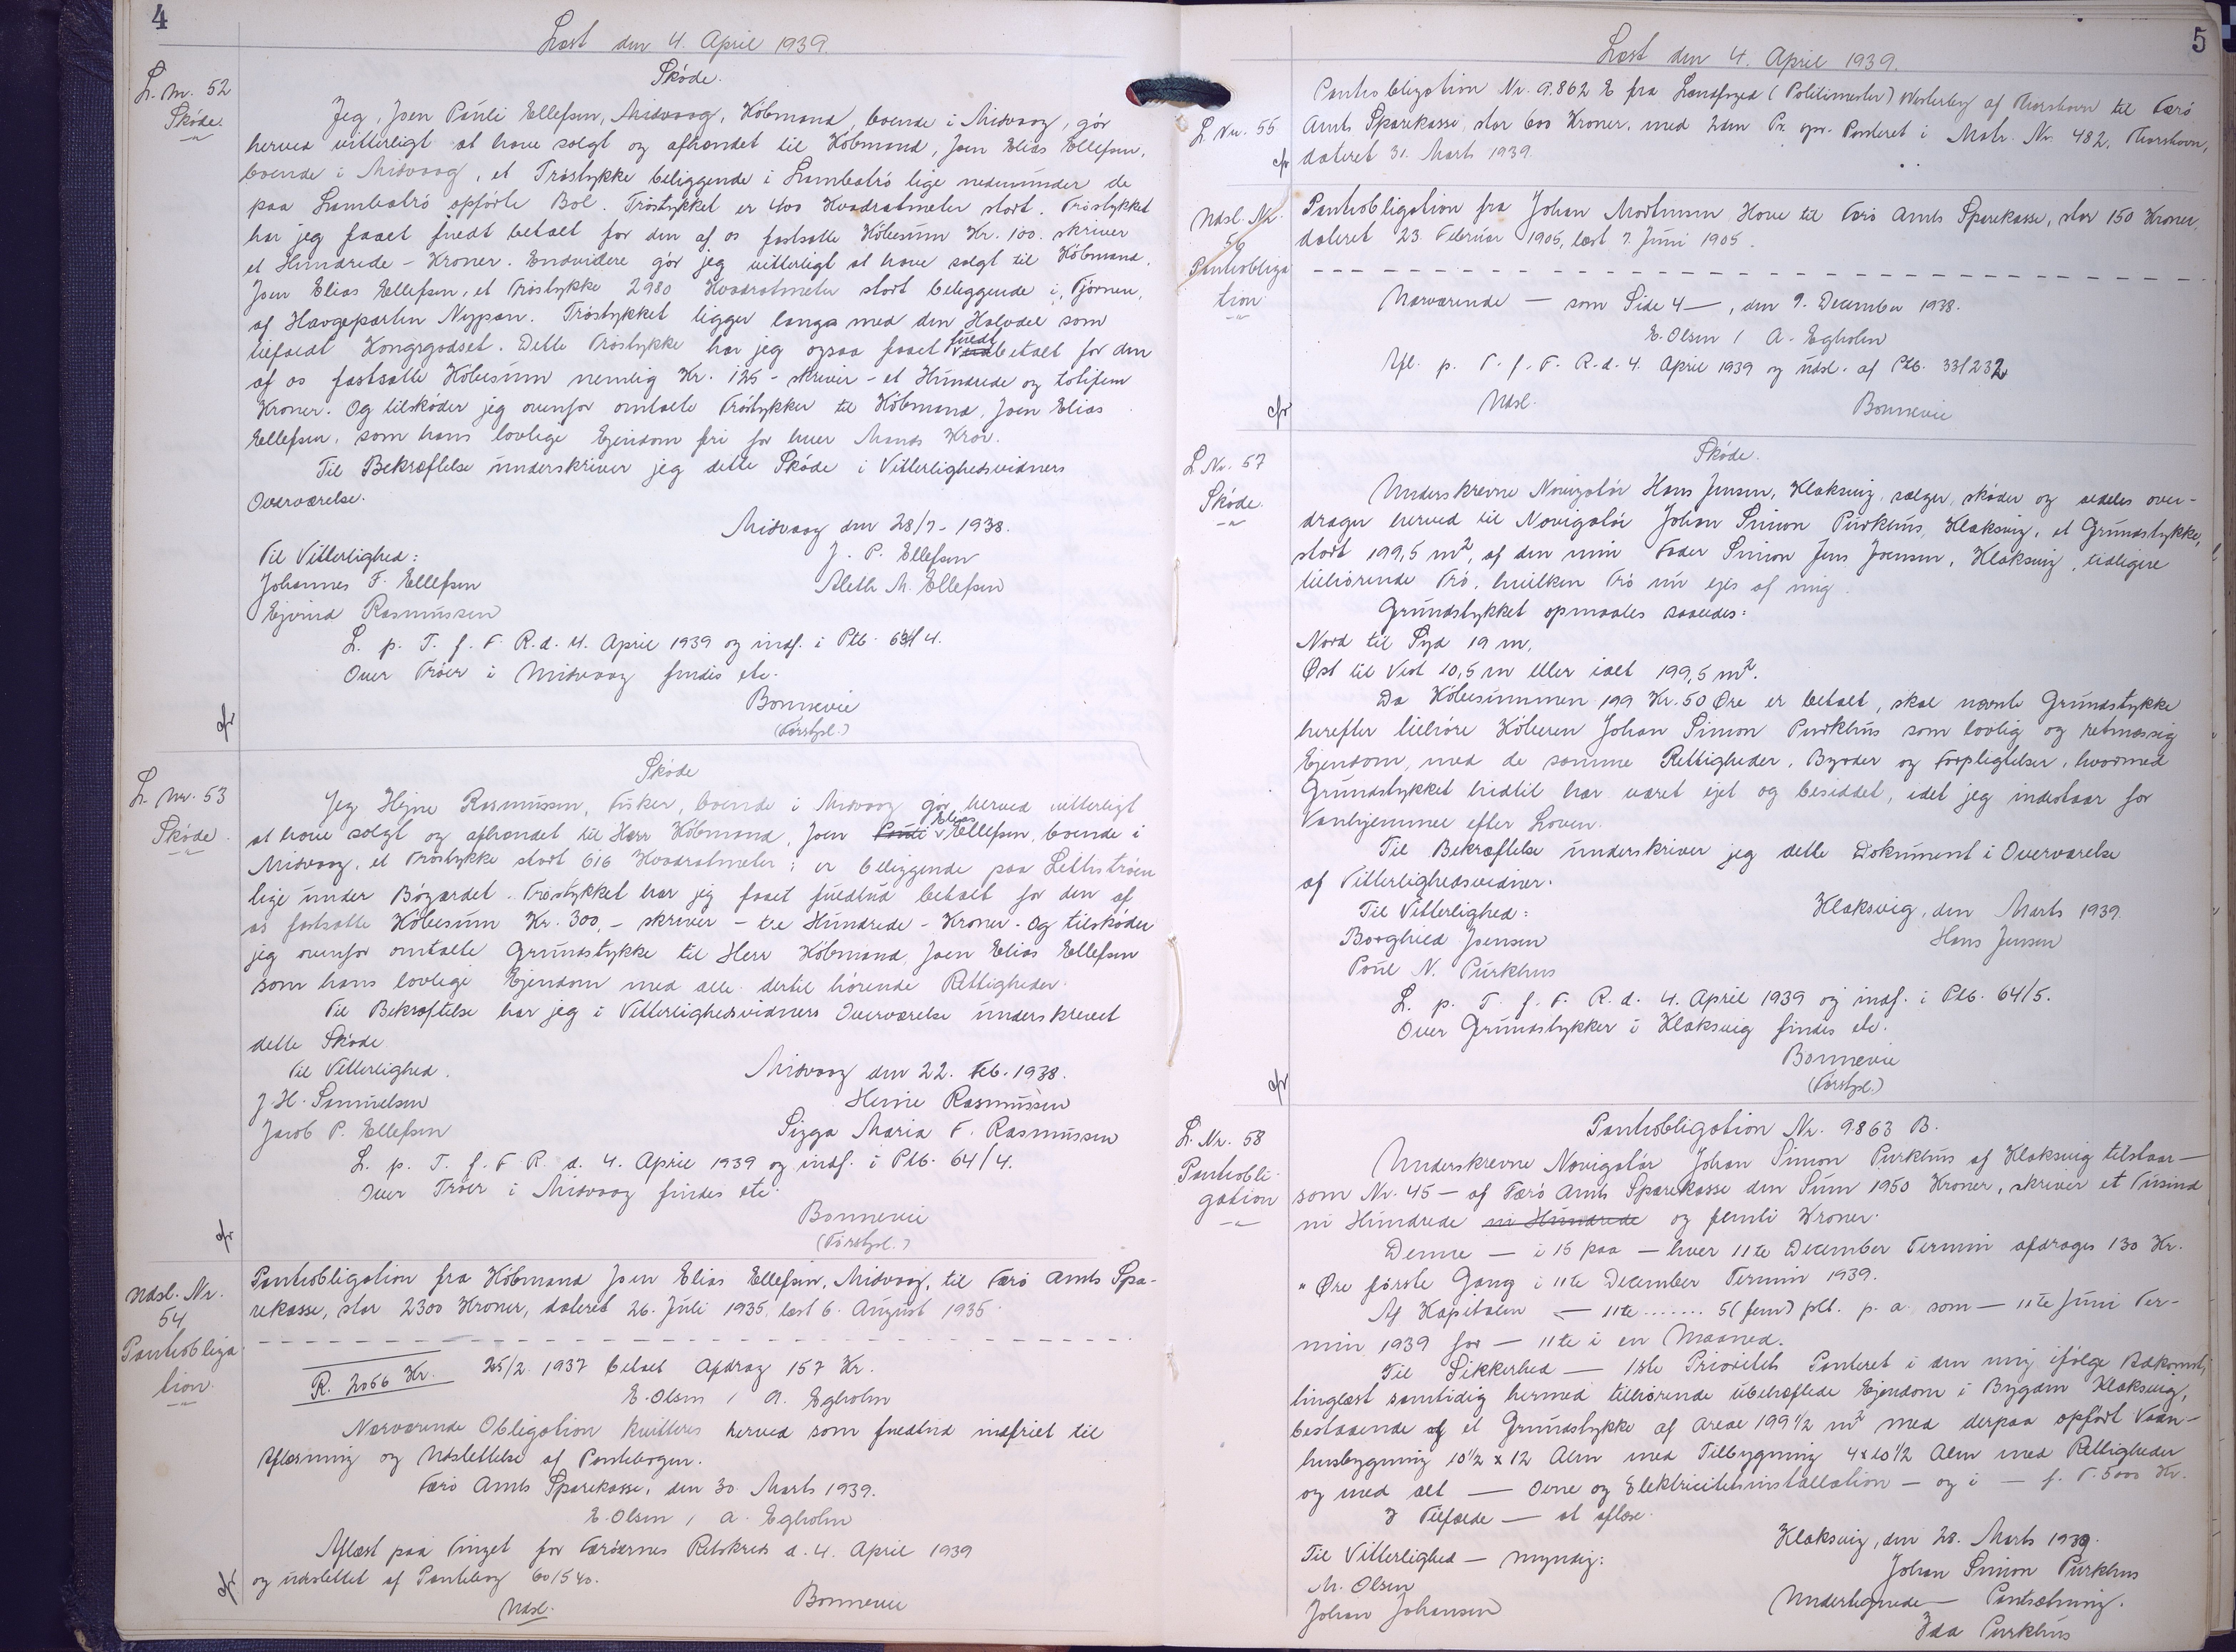 4
Læst den 4. April 1939.
L. Nr. 52
Skøde.
Skøde.
Jeg, Joen Pauli Ellefsen, Midvaag, Köbmand, boende i Midvaag, gör
herved vitterligt at have solgt og afhændet til Köbmand, Joen Elias Ellefsen,
boende i Midvaag, et Tröstykke beliggende i Lambatrö lige nedenunder de
paa Lambatrö opförte Bol. Tröstykket er 400 Kvadratmeter stort. Tröstykket
har jeg faaet fuedt betalt for den af os fastsatte Köbesum Kr. 100. skriver
et Hundrede - Kroner. Endvidere gör jeg vitterligt at have solgt til Köbmand,
Joen Elias Ellefsen, et Tröstykke 2980 Kvadratmeter stort beliggende i, Tjörnen,
af Haugeparten Nypan. Tröstykket ligger langs med den Halvdel som
tilfaldt Kongsgodset. Dette Tröstykke har jeg ogsaa faaet fuldt betalt for den
af os fastsatte Köbesum nemlig Kr. 125 - skriver - et Hundrede og totifem
Kroner. Og tilsköder jeg ovenfor omtalte Tröstykker til Köbmand, Joen Elias
Ellefsen, som hans lovlige Ejendom fri for hver Mands Krav.
Til Bekræftelse underskriver jeg dette Sköde i Vitterlighedsvidners
Overværelse.
Midvaag den 28/7 - 1938.
Til Vitterlighed: J. P. Ellefsen
Johannes F. Ellefsen Aleth M. Ellefsen
Ejvind Rasmussen
L. p. T. f. F. R. d. 4. April 1939 og indf. i Ptb. 64/4.
Over Tröer i Midvaag findes etc.
Bonnevie
(Förstgsl.)
cfr
L. Nr. 53
Skøde.
Skøde
Jeg Hejne Rasmussen, Fisker, boende i Midvaag gör herved vitterligt
at have solgt og afhændet til Herr Köbmand, Joen Pauli Elias Ellefsen, boende i
Midvaag, et Tröstykke stort 616 Kvadratmeter; er beliggende paa Littlströen
lige under Bögærdet. Tröstykket har jeg faaet fuldtud betalt for den af
os fastsatte Köbesum Kr. 300,- skriver - tre Hundrede - Kroner. Og tilsköder
jeg ovenfor omtalte Grundstykke til Herr Köbmand, Joen Elias Ellefsen
som hans lovlige Ejendom med alle dertil hörende Rettigheder.
Til Bekræftelse har jeg i Vitterlighedsvidners Overværelse underskrevet
dette Sköde
Til Vitterlighed. Midvaag den 22. Feb. 1938.
J. H. Samuelsen Heine Rasmussen
Jacob P. Ellefsen Sigga Maria F. Rasmussen
L. p. T. f. F. R. d. 4. April 1939 og indf. i Ptb. 64/4.
Over Tröer i Midvaag findes etc.
Bonnevie
(Förstgsl.)
cfr
Udsl. Nr.
54
Pantobliga
tion.
Pantobligation fra Köbmand Joen Elias Ellefsen, Midvaag, til Færö Amts Spa-
rekasse, stor 2300 Kroner, dateret 26. Juli 1935, læst 6. August 1935.
R. 2066 Kr. 25/2 1937 betalt Afdrag 157 Kr.
E. Olsen / A. Egholm
Nærværende Obligation kvitteres herved som fuldtud indfriet til
Aflæsning og Udslettelse af Pantebogen.
Færö Amts Sparekasse, den 30. Marts 1939.
E. Olsen / A. Egholm
Aflæst paa Tinget for Færöernes Retskreds d. 4. April 1939
og udslettet af Pantebog 60/540.
Udsl. Bonnevie
cfr
5
Læst den 4. April 1939.
L. Nr. 55
Pantobligation Nr. 9.862 B fra Landfoged (Politimester) Westerby af Thorshavn til Færö
Amts Sparekasse, stor 600 Kroner, med 2den Pr. opr. Panteret i Matr. Nr. 482, Thorshavn,
dateret 31. Marts 1939.
cfr
Udsl. Nr.
56
Pantobliga
tion.
Pantobligation fra Johan Mortensen Hove til Færö Amts Sparekasse, stor 150 Kroner,
dateret 23. Februar 1905, læst 7. Juni 1905.
Nærværende — som Side 4 —, den 9. December 1938.
E. Olsen / A. Egholm
Afl. p. T. f. F. R. d. 4. April 1939 og udsl. af Ptb. 33/232
Udsl. Bonnevie
cfr
L. Nr. 57
Skøde.
Skøde.
Underskrevne Navigatör Hans Jensen, Klaksvig, sælger, sköder og aldeles over-
drager herved til Navigatör Johan Simon Purkhus, Klaksvig, et Grundstykke,
stort 199,5 m², af den min Fader Simon Jens Joensen, Klaksvig, tidligere
tilhörende Trö, hvilken Trö nu ejes af mig.
Grundstykket opmaales saaledes:
Nord til Syd 19 m,
Øst til Vest 10,5 m eller ialt 199,5 m².
Da Köbesummen 199 Kr. 50 Øre er betalt, skal nævnte Grundstykke
herefter tilhöre Köberen Johan Simon Purkhus som lovlig og retmæssig
Ejendom, med de samme Rettigheder, Byrder og Forpligtelser, hvormed
Grundstykket hidtil har været ejet og besiddet, idet jeg indestaar for
Vanhjemmel efter Loven.
Til Bekræftelse underskriver jeg dette Dokument i Overværelse
af Vitterlighedsvidner.
Til Vitterlighed: Klaksvig, den Marts 1939.
Borghild Joensen Hans Jensen
Poul N. Purkhus
L. p. T. f. F. R. d. 4. April 1939 og indf. i Ptb. 64/5.
Over Grundstykker i Klaksvig findes etc.
Bonnevie
(Förstgsl.)
cfr
L. Nr. 58
Pantobli-
gation
Pantobligation Nr. 9863 B.
Underskrevne Navigatör Johan Simon Purkhus af Klaksvig tilstaar —
som Nr. 45 — af Færö Amts Sparekasse den Sum 1950 Kroner, skriver et Tusind
ni Hundrede ni Hundrede og femti Kroner.
Denne — i 15 paa — hver 11te December Termin afdrages 130 Kr.
" Øre förste Gang i 11te December Termin 1939.
Af Kapitalen — 11te ....... 5 (fem) pCt. p. a. som — 11te Juni Ter-
min 1939 for — 11te i en Maaned.
Til Sikkerhed — 1ste Prioritets Panteret i den mig ifölge Adkomst,
tinglæst samtidig hermed tilhörende ubehæftede Ejendom i Bygden Klaksvig,
bestaaende af et Grundstykke af Areal 199 1/2 m² med derpaa opfört Vaan-
husbygning 10 1/2 x 12 Alen med Tilbygning 4 x 10 1/2 Alen med Rettigheder
og med alt — Ovne og Elektricitetsinstallation — og i — f. T. 5000 Kr.
I Tilfælde — at aflæse.
Klaksvig, den 28. Marts 1939.
Til Vitterlighed — myndig: Johan Simon Purkhus
M. Olsen Undertegnede — Pantsætning.
Johan Johansen Ida Purkhus